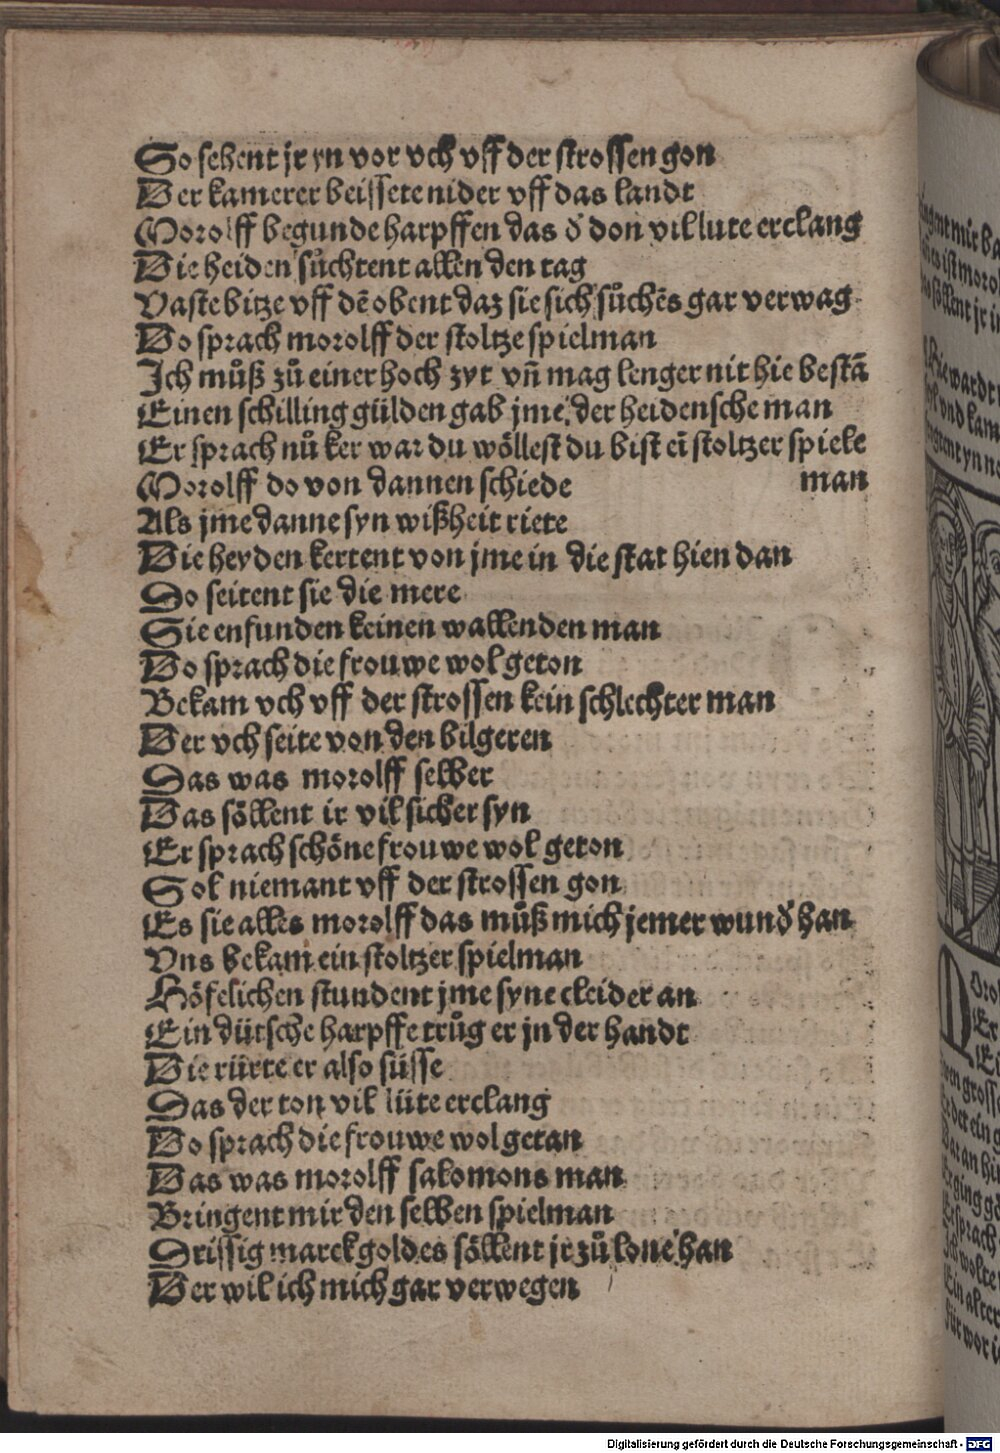 So sehent jr yn vor vch vff der strossen gon
Der kamerer beissete nider vff das landt
Morolff begunde harpffen das d̕ don vil lute erclang
Die heiden sůchtent allen den tag
Vaste bitze vff dē obent daz sie sich sůchēs gar verwag
Do sprach morolff der stoltze spielman
Ich můß zů einer hoch zyt vn̄ mag lenger nit hie bestā
Einen schilling gülden gab jme der heidensche man
Er sprach nů ker war du wöllest du bist eī stoltzer spiele
Morolff do von dannen schiede man
Als jme danne syn wißheit riete
Die heyden kertent von jme in die stat hien dan
Do seitent sie die mere
Sie enfunden keinen wallenden man
Do sprach die frouwe wol geton
Bekam vch vff der strossen kein schlechter man
Der vch seite von den bilgeren
Das was morolff selber
Das söllent ir vil sicher syn
Er sprach schöne frouwe wol geton
Sol niemant vff der strossen gon
Es sie alles morolff das můß mich jemer wund̕ han
Vns bekam ein stoltzer spielman
Höfelichen stundent jme syne cleider an
Ein dütsche harpffe trůg er jn der handt
Die rürte er also süsse
Das der ton vil lüte erclang
Do sprach die frouwe wol getan
Das was morolff salomons man
Bringent mir den selben spielman
Drissig marck goldes söllent jr zů lone han
Der wil ich mich gar verwegen
Digitalisierung gefördert durch die Deutsche Forschungsgemeinschaft - DFG